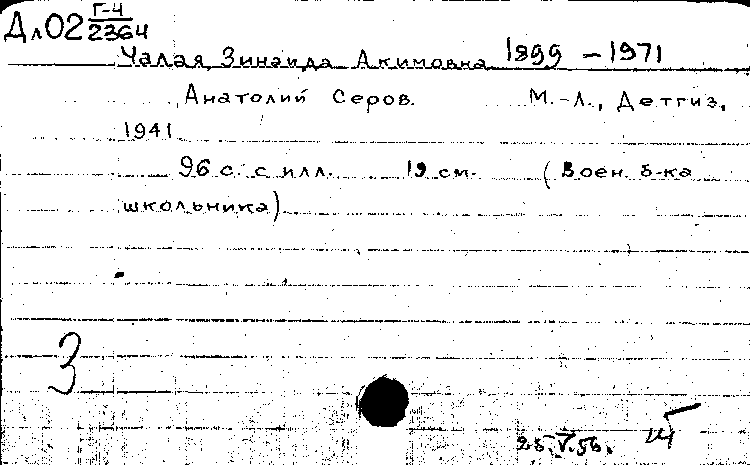 Дл02 Г-4/2364
Чалая, Зинаида Акимовна 1899 – 1971
Анатолий Серов. М.-Л., Детгиз,
1941
96 с. с илл. 19 см. (Воен. б-ка
школьника)
3
25.V.56.